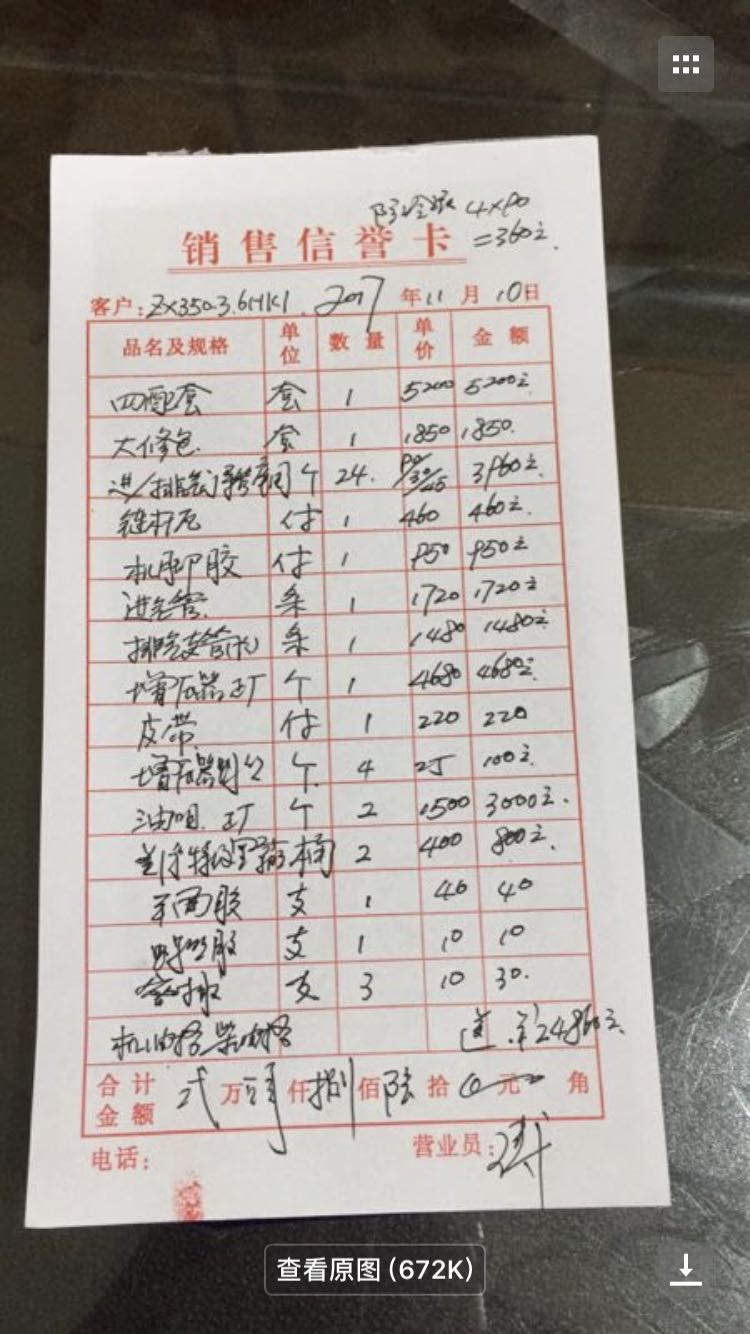 4×90
销售信誉卡 =360元.
客户: ZX350-3.6HK1. 2017年11月10日
品名及规格 单位 数量 单价 金额
四配套 套 1 5200 5200元
大修包. 套 1 1850 1850.
进/排气门 个 24. 90/30/45 3960元
链杆瓦 付 1 460 460元
机脚胶 付 1 950 950元
进气管. 条 1 1720 1720元
排气支管 条 1 1480 1480元
增压器 正厂 个 1 4680 4680元
皮带 付 1 220 220
增压器 个 4 25 100元
油咀. 正厂 个 2 1500 3000元.
桶 2 400 800元.
平面胶 支 1 40 40
胶 支 1 10 10
支 3 10 30.
机油格 柴油格 送. ¥24860元
合计金额 弍万肆仟捌佰陆拾0元角
电话: 营业员:
查看原图 (672K)